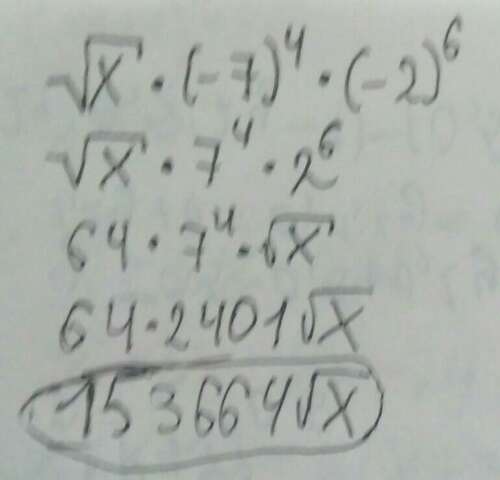 √x · (-7)⁴ · (-2)⁶
√x · 7⁴ · 2⁶
64 · 7⁴ · √x
64 · 2401√x
153664√x